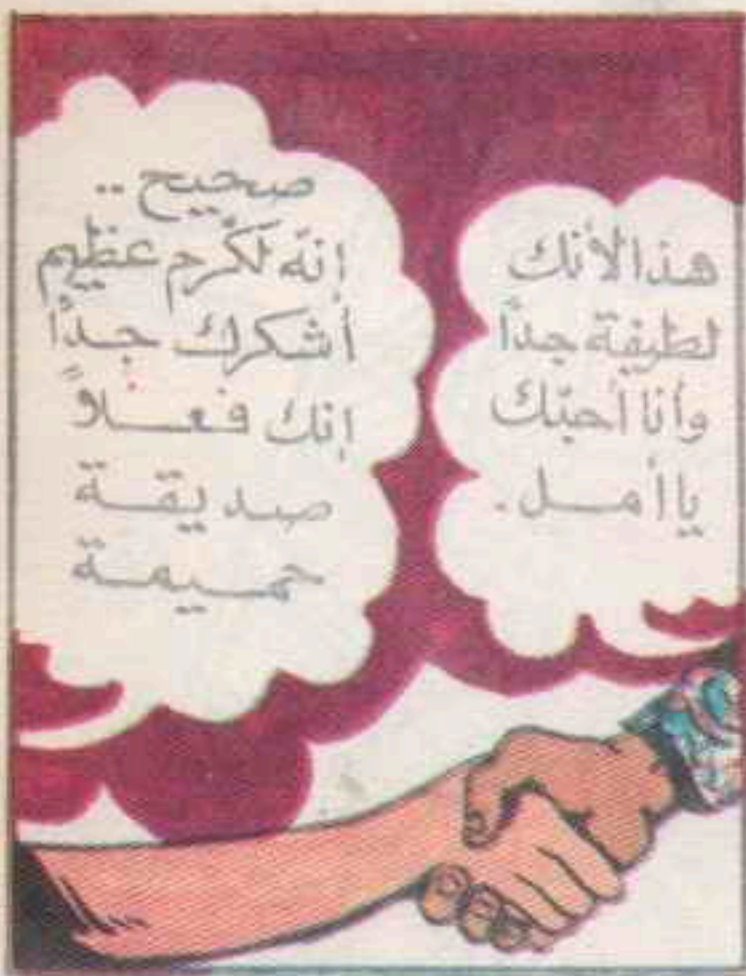 هذا لأنك
لطيفة جدًا
وأنا أحبّك
يا أمل.
صحيح ..
إنّه لَكَرم عظيم
أشكرك جدًا
إنك فعلاً
صديقة
حميمة